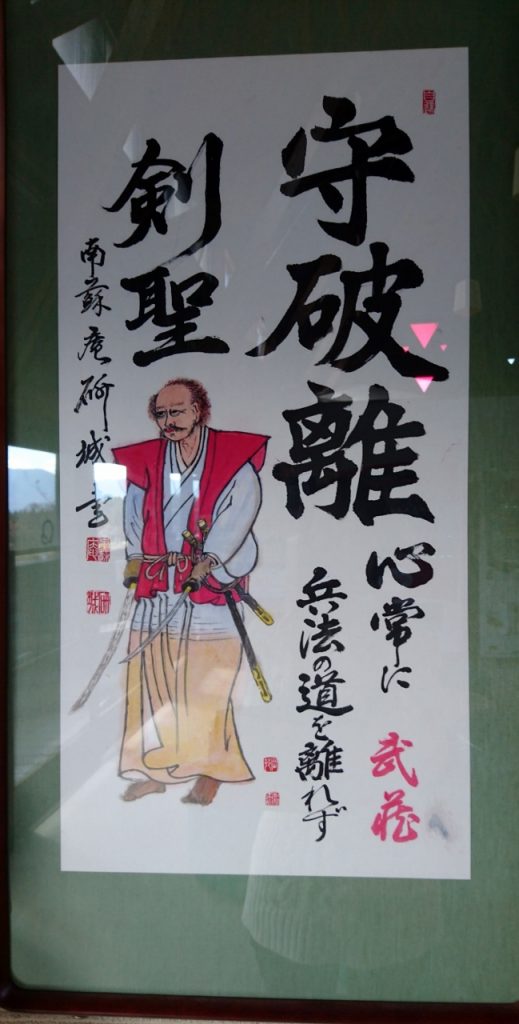 守破離
心常に
兵法の道を離れず
武蔵
剣聖
南蘇庵柳城書